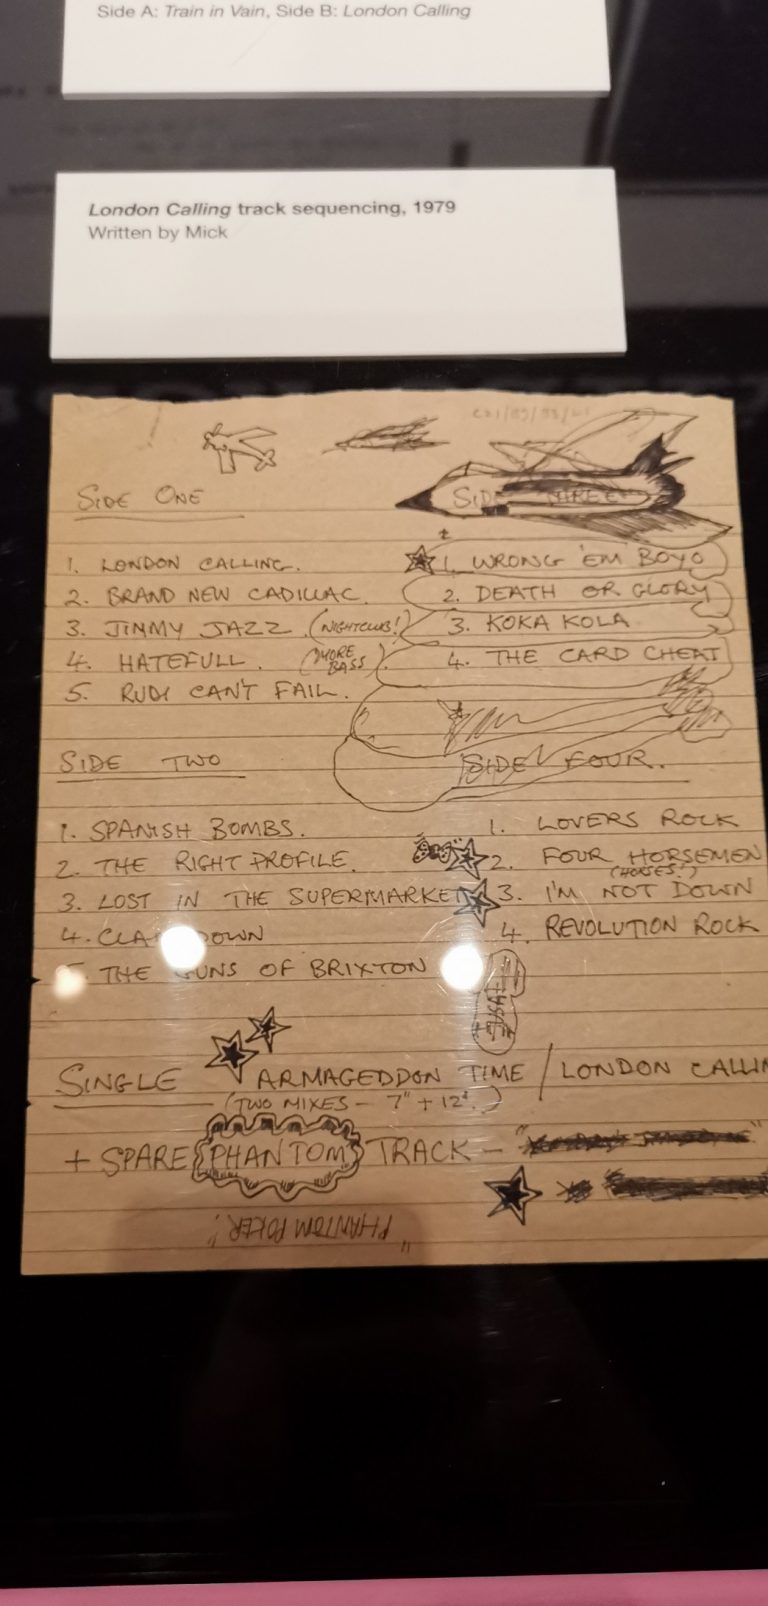 Side A: Train in Vain, Side B: London Calling
London Calling track sequencing, 1979
Written by Mick
SIDE ONE
1. LONDON CALLING.
2. BRAND NEW CADILLAC.
3. JIMMY JAZZ. (NIGHTCLUB!)
4. HATEFULL. (MORE BASS)
5. RUDI CAN'T FAIL.
SIDE TWO
1. SPANISH BOMBS.
2. THE RIGHT PROFILE.
3. LOST IN THE SUPERMARKET
4. CLAMPDOWN
5. THE GUNS OF BRIXTON
SIDE THREE
1. WRONG 'EM BOYO
2. DEATH OR GLORY
3. KOKA KOLA
4. THE CARD CHEAT
SIDE FOUR.
1. LOVERS ROCK
2. FOUR HORSEMEN
(HORSES?)
3. I'M NOT DOWN
4. REVOLUTION ROCK
USA
SINGLE ARMAGEDDON TIME / LONDON CALLIN
(TWO MIXES - 7" + 12".)
+ SPARE PHANTOM TRACK -
"PHANTOM POKER!